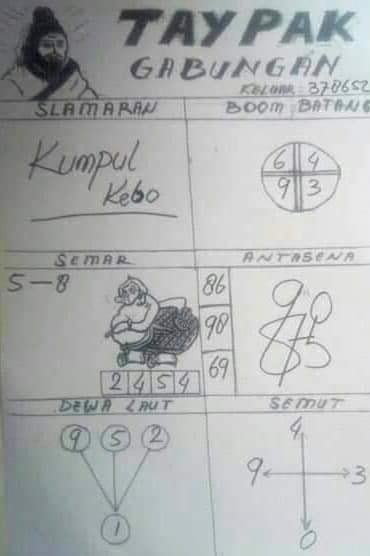 TAYPAK
GABUNGAN
KELUAR: 378652
SLAMARAN
BOOM BATANG
Kumpul
Kebo
6 4
9 3
SEMAR
ANTASENA
5-8
86
98
69
2 4 5 4
DEWA LAUT
SEMUT
9 5 2
1
4
9 3
0